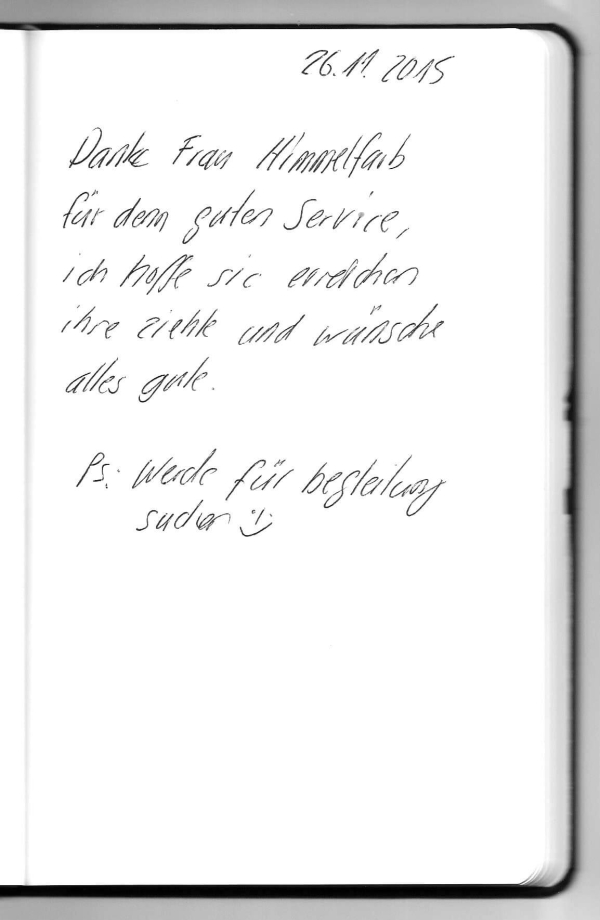 26.11.2015
Danke Frau Himmelfarb
für denn guten Service,
ich hoffe sie erreichen
ihre ziehle und wünsche
alles gute.
Ps: Werde für begleitung
suchen :)